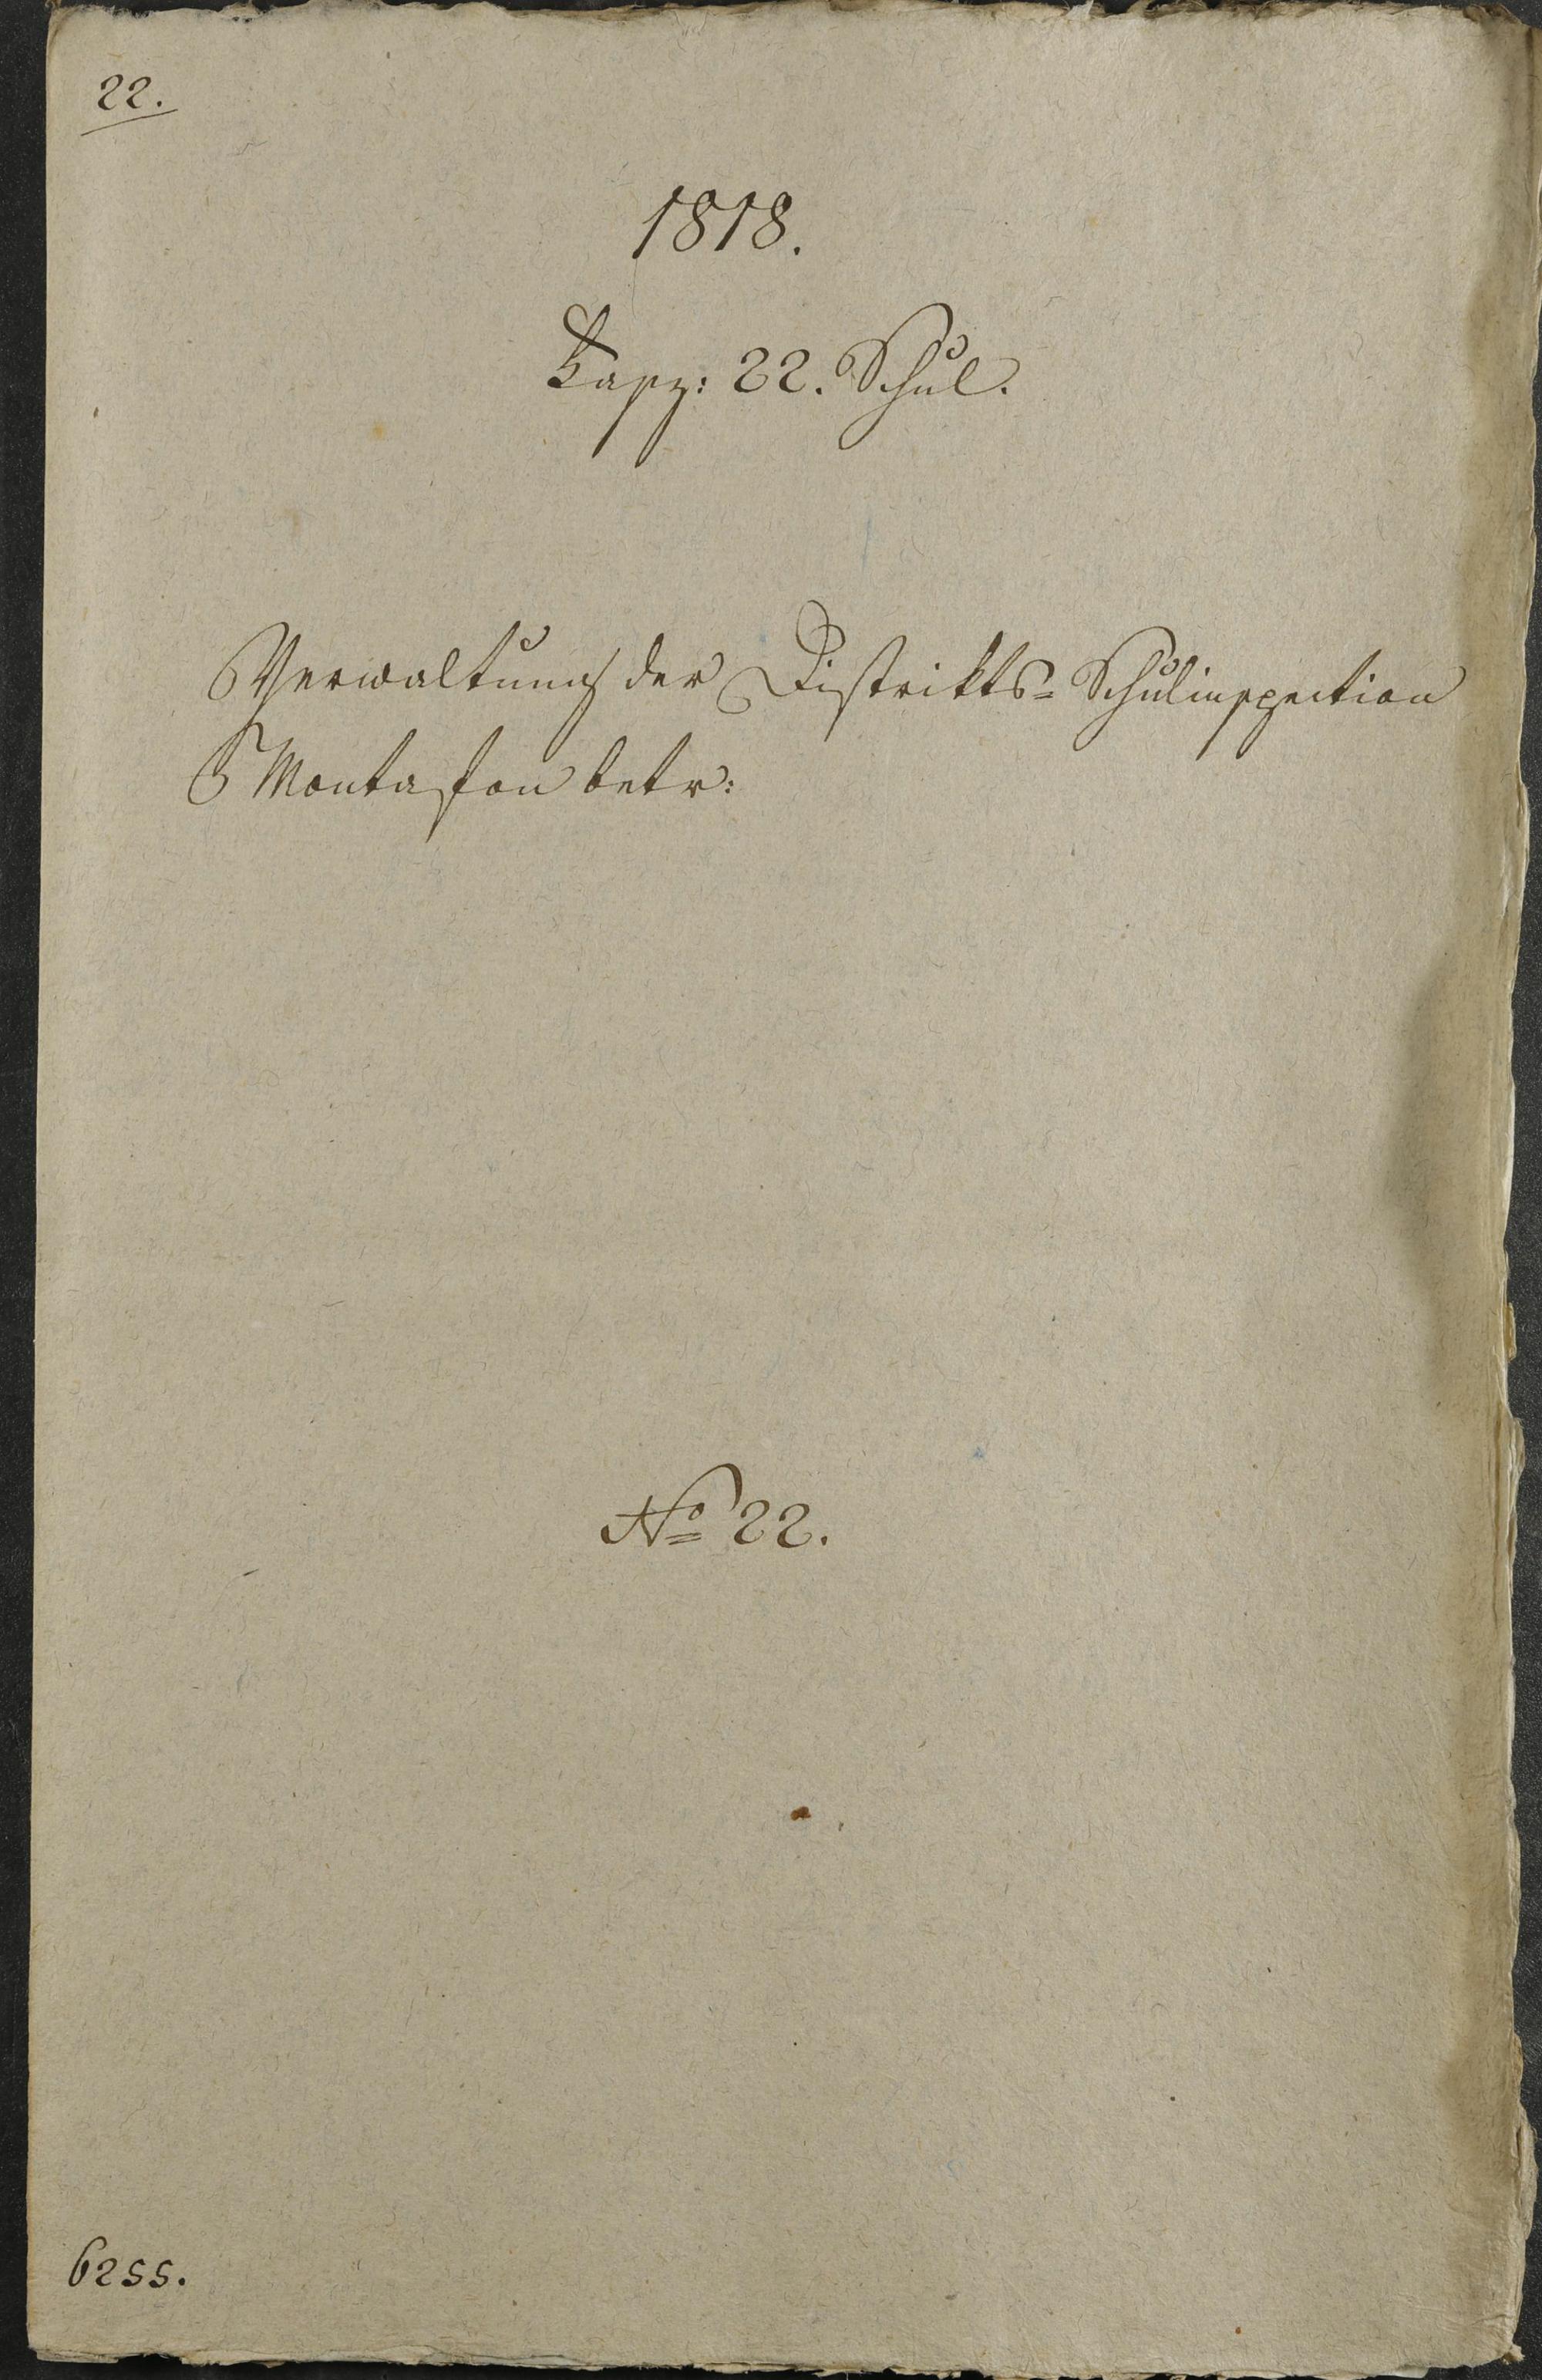 22.
1818.
Fasz: 22. Schul.
Verwaltung der Distrikts=Schulinspection
Montafon betr:
No 22.
6255.